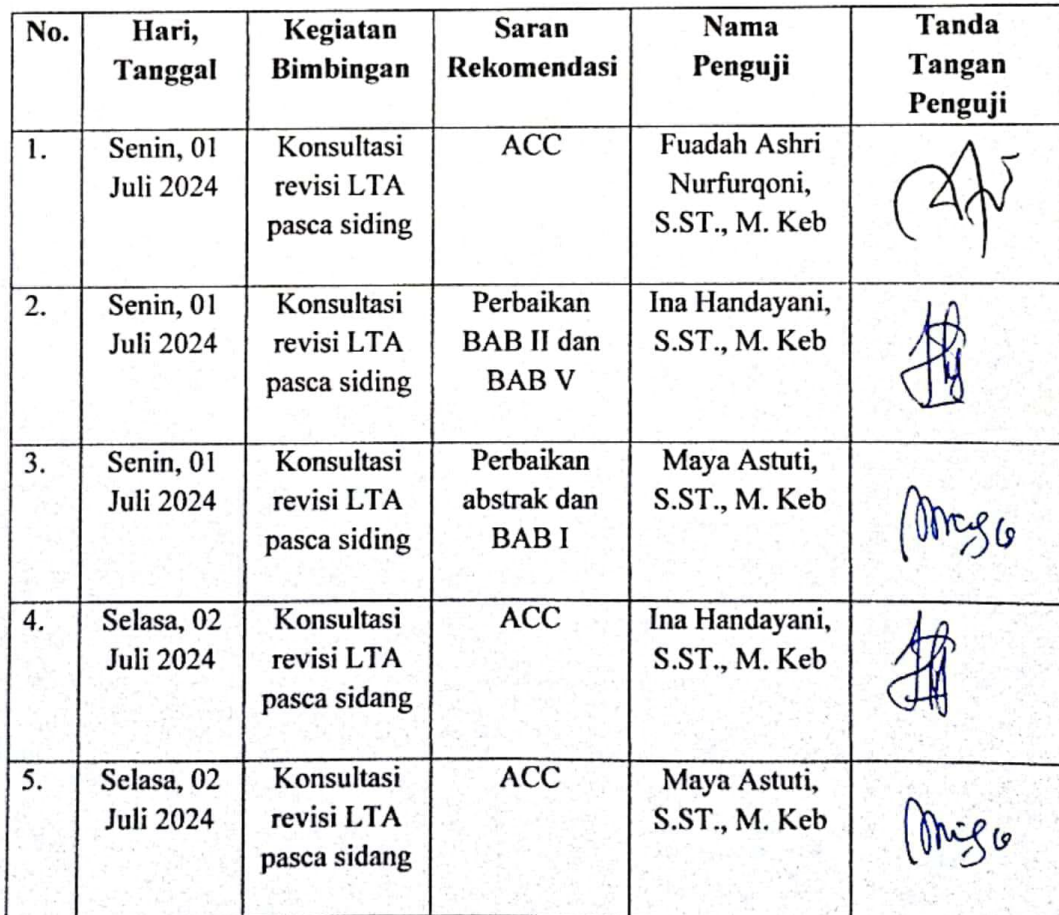 No.
Hari,
Tanggal
Kegiatan
Bimbingan
Saran
Rekomendasi
Nama
Penguji
Tanda
Tangan
Penguji
1.
Senin, 01
Juli 2024
Konsultasi
revisi LTA
pasca siding
ACC
Fuadah Ashri
Nurfurqoni,
S.ST., M. Keb
2.
Senin, 01
Juli 2024
Konsultasi
revisi LTA
pasca siding
Perbaikan
BAB II dan
BAB V
Ina Handayani,
S.ST., M. Keb
3.
Senin, 01
Juli 2024
Konsultasi
revisi LTA
pasca siding
Perbaikan
abstrak dan
BAB I
Maya Astuti,
S.ST., M. Keb
4.
Selasa, 02
Juli 2024
Konsultasi
revisi LTA
pasca sidang
ACC
Ina Handayani,
S.ST., M. Keb
5.
Selasa, 02
Juli 2024
Konsultasi
revisi LTA
pasca sidang
ACC
Maya Astuti,
S.ST., M. Keb